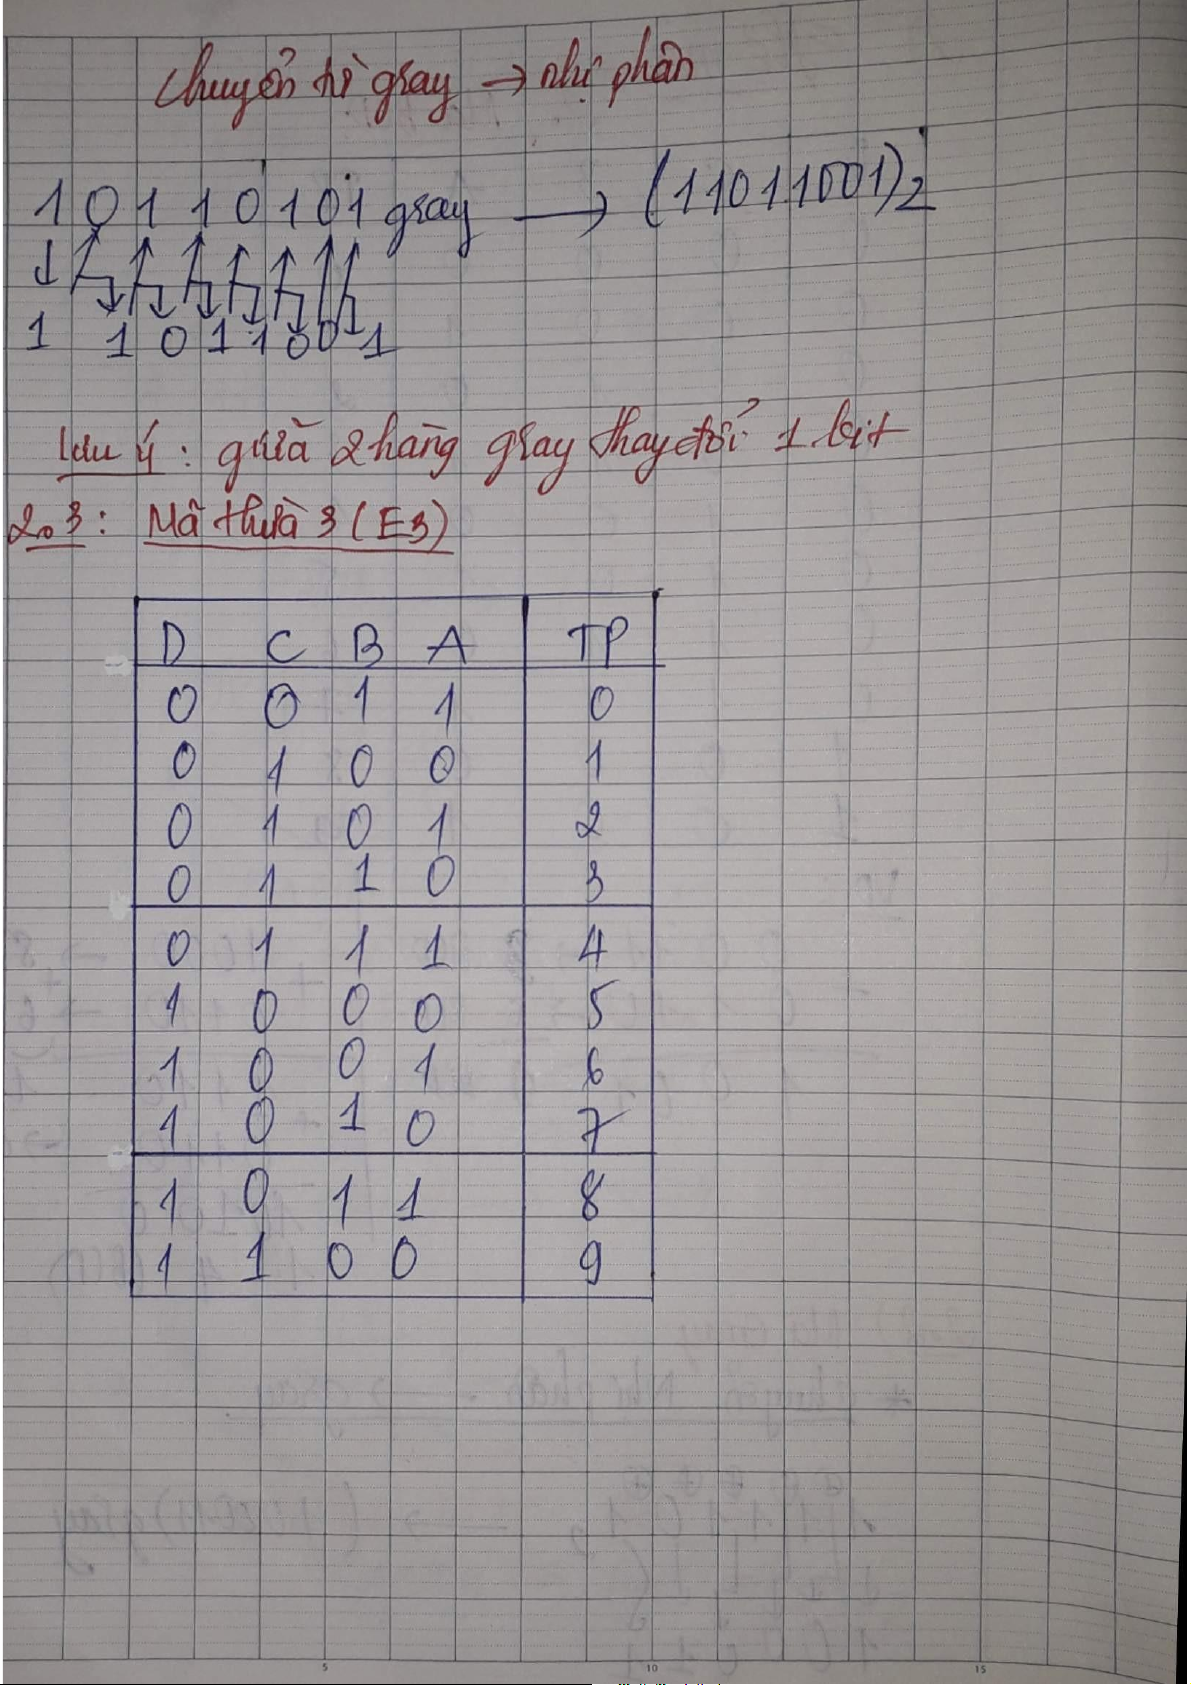 Chuyển từ gray → nhị phân
10110101 gray → (11011001)2
1 1 0 1 1 0 0 1
Lưu ý: giữa 2 hàng gray thay đổi 1 bit
2.3: Mã thừa 3 (E3)
D C B A TP
0 0 1 1 0
0 1 0 0 1
0 1 0 1 2
0 1 1 0 3
0 1 1 1 4
1 0 0 0 5
1 0 0 1 6
1 0 1 0 7
1 0 1 1 8
1 1 0 0 9
5 10 15